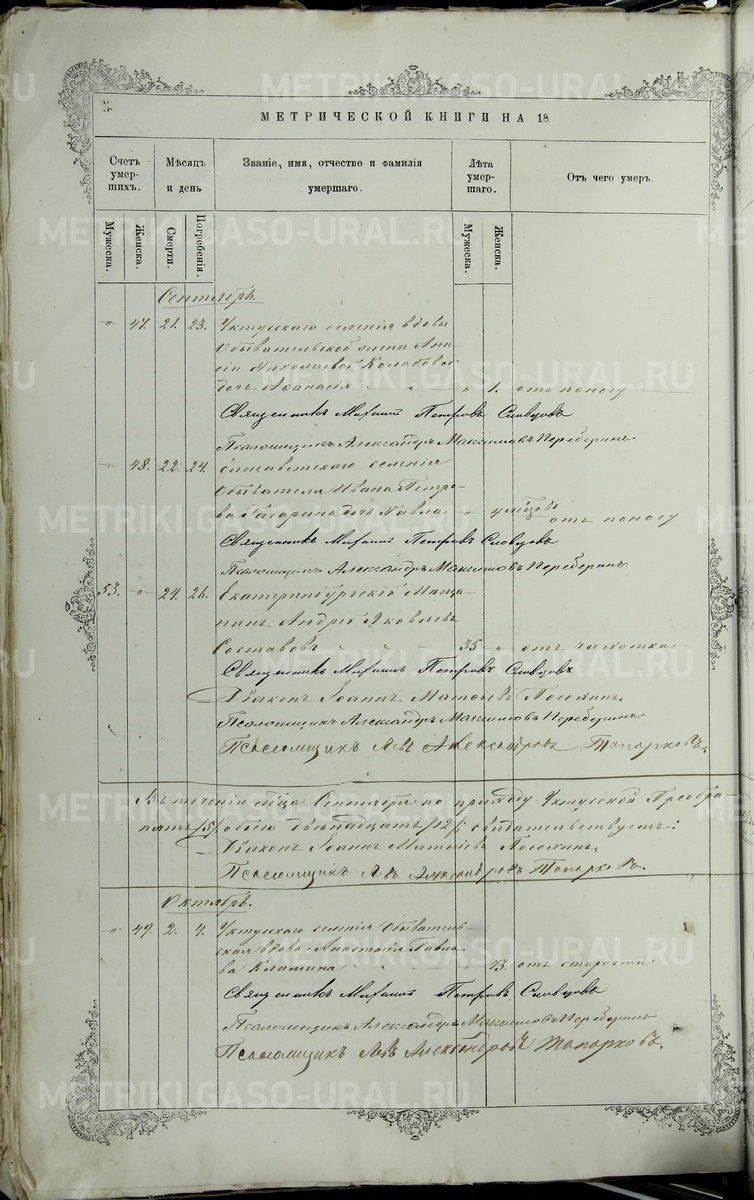 METRIKI.GASO-URAL.RU
МЕТРИЧЕСКОЙ КНИГИ НА 18
Счетъ умер- шихъ.
Мѣсяцъ и день
Званіе, имя, отчество и фамилія умершаго.
Лѣта умер- шаго.
Отъ чего умеръ.
Мужеска.
Женска.
Смерти.
Погребенія.
Мужеска.
Женска.
Сентябрь.
" 47. 21. 23. Уктусскаго селенія вдовы
Обывательской жены
Николаевой
дочь Афанасія " 1. отъ поносу
Священникъ Михаилъ Петровъ Словцовъ
Псаломщикъ Александръ Максимовъ Переберинъ
" 48. 22. 24. Елисаветскаго селенія
Обывателя Ивана Петро-
ва дочь Павла " 4 мѣсяцовъ
отъ поносу
Священникъ Михаилъ Петровъ Словцовъ
Псаломщикъ Александръ Максимовъ Переберинъ
53. " 24. 26. Екатеринбургскій Мѣща-
нинъ Андрей Яковлевъ
35 " отъ чахотки
Священникъ Михаилъ Петровъ Словцовъ
Діаконъ Іоаннъ
Псаломщикъ Александръ Максимовъ Переберинъ
Псаломщикъ Левъ Александровъ Топорковъ.
Въ теченіи мѣсяца Сентября по приходу Уктусской Преобра-
пять /5/ обоего двѣнадцать /12/; свидѣтельствуемъ:
Діаконъ Іоаннъ
Псаломщикъ Левъ Александровъ Топорковъ.
Октябрь.
" 49. 2. 4. Уктусскаго селенія Обыватель-
ская вдова Анастасія Павло-
ва " 73. отъ старости
Священникъ Михаилъ Петровъ Словцовъ
Псаломщикъ Александръ Максимовъ Переберинъ
Псаломщикъ Левъ Александровъ Топорковъ.